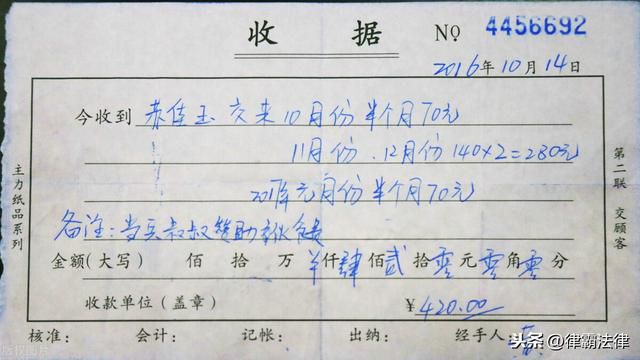 收据 NO 4456692
2016年10月14日
今收到 佳玉 交来10月份半个月70元
11月份.12月份140×2=280元
元月份半个月70元
备注:当兵叔叔赞助
金额(大写) 佰 拾 万 仟肆佰贰拾零元零角零分
收款单位(盖章) ¥420.00
核准: 会计: 记帐: 出纳: 经手人:
主力纸品系列
第二联 交顾客
头条@律霸法律